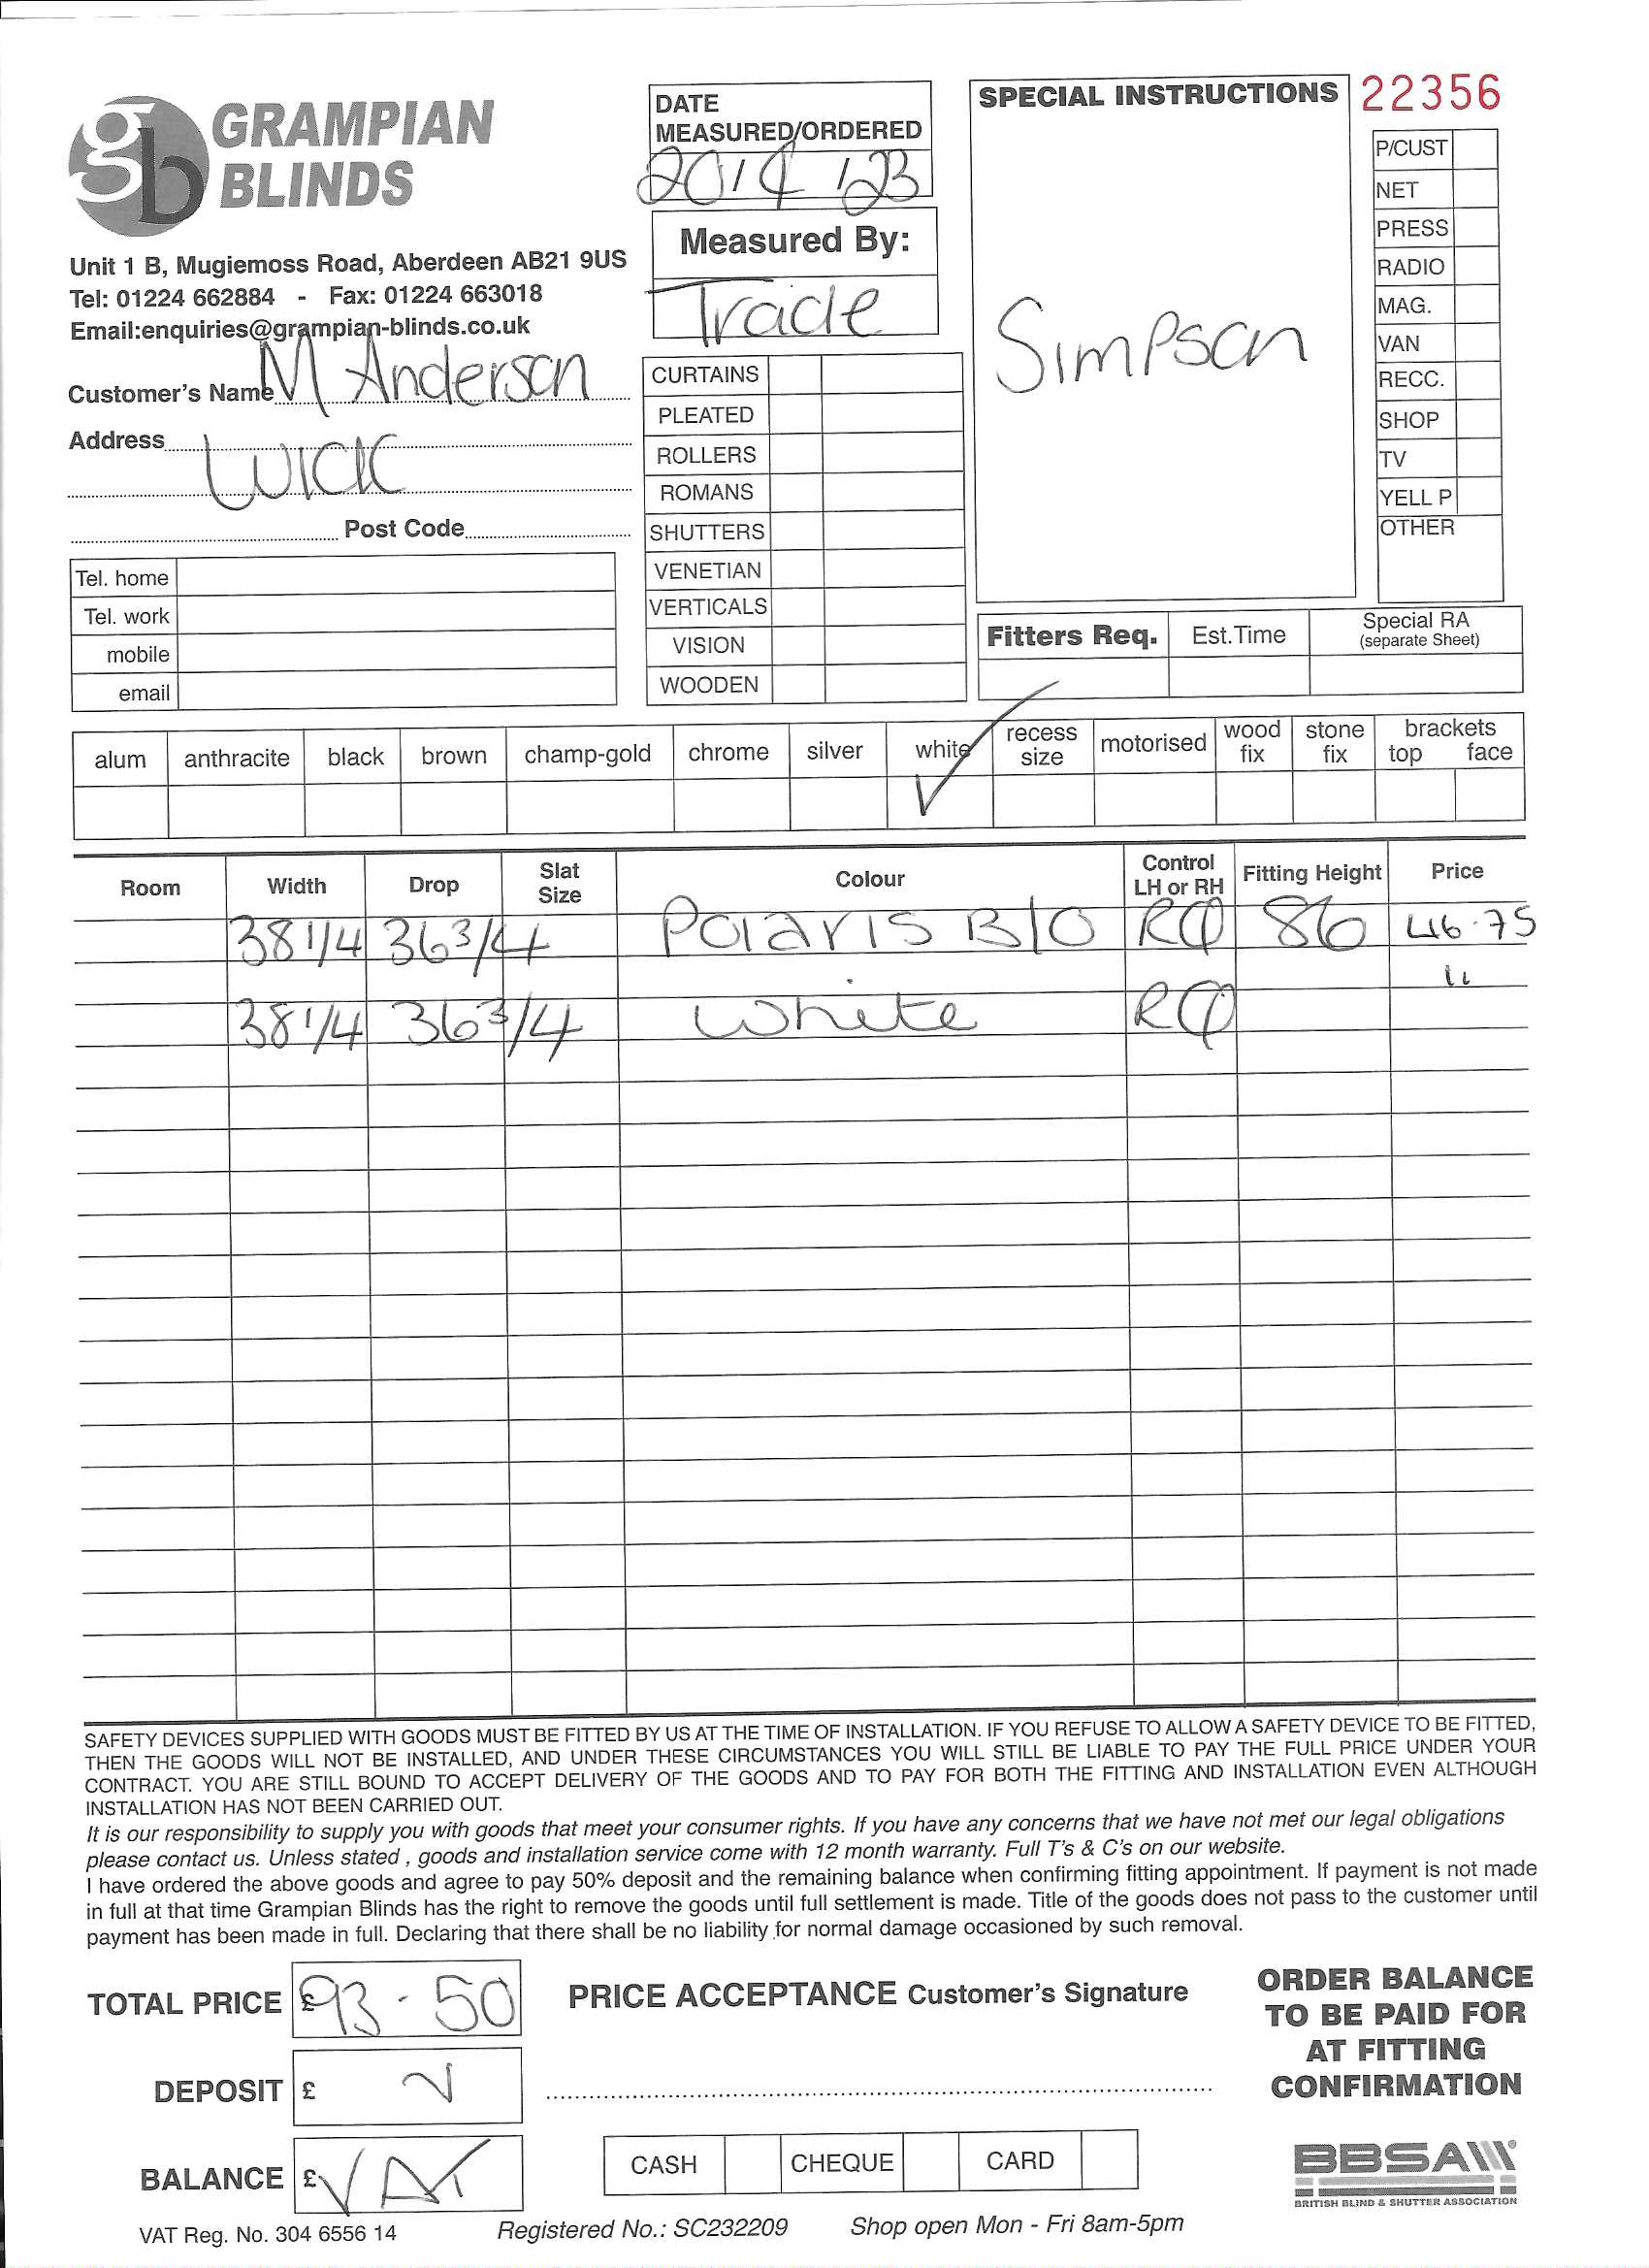 GRAMPIAN
BLINDS
Unit 1 B, Mugiemoss Road, Aberdeen AB21 9US
Tel: 01224 662884 - Fax: 01224 663018
Email:enquiries@grampian-blinds.co.uk
Customer's Name M Anderson
Address Wick
Post Code
Tel. home
Tel. work
mobile
email
DATE
MEASURED/ORDERED
20/4/23
Measured By:
Trade
CURTAINS
PLEATED
ROLLERS
ROMANS
SHUTTERS
VENETIAN
VERTICALS
VISION
WOODEN
SPECIAL INSTRUCTIONS
Simpson
22356
P/CUST
NET
PRESS
RADIO
MAG.
VAN
RECC.
SHOP
TV
YELL P
OTHER
Fitters Req. Est.Time Special RA
(separate Sheet)
alum anthracite black brown champ-gold chrome silver white recess size motorised wood fix stone fix brackets top face
Room Width Drop Slat Size Colour Control LH or RH Fitting Height Price
38 1/4 36 3/4 Polaris B/O 86 46.75
38 1/4 36 3/4 White "
SAFETY DEVICES SUPPLIED WITH GOODS MUST BE FITTED BY US AT THE TIME OF INSTALLATION. IF YOU REFUSE TO ALLOW A SAFETY DEVICE TO BE FITTED,
THEN THE GOODS WILL NOT BE INSTALLED, AND UNDER THESE CIRCUMSTANCES YOU WILL STILL BE LIABLE TO PAY THE FULL PRICE UNDER YOUR
CONTRACT. YOU ARE STILL BOUND TO ACCEPT DELIVERY OF THE GOODS AND TO PAY FOR BOTH THE FITTING AND INSTALLATION EVEN ALTHOUGH
INSTALLATION HAS NOT BEEN CARRIED OUT.
It is our responsibility to supply you with goods that meet your consumer rights. If you have any concerns that we have not met our legal obligations
please contact us. Unless stated , goods and installation service come with 12 month warranty. Full T's & C's on our website.
I have ordered the above goods and agree to pay 50% deposit and the remaining balance when confirming fitting appointment. If payment is not made
in full at that time Grampian Blinds has the right to remove the goods until full settlement is made. Title of the goods does not pass to the customer until
payment has been made in full. Declaring that there shall be no liability for normal damage occasioned by such removal.
TOTAL PRICE £93-50
DEPOSIT £
BALANCE £ VAT
PRICE ACCEPTANCE Customer's Signature
CASH CHEQUE CARD
ORDER BALANCE
TO BE PAID FOR
AT FITTING
CONFIRMATION
BBSA
BRITISH BLIND & SHUTTER ASSOCIATION
VAT Reg. No. 304 6556 14 Registered No.: SC232209 Shop open Mon - Fri 8am-5pm